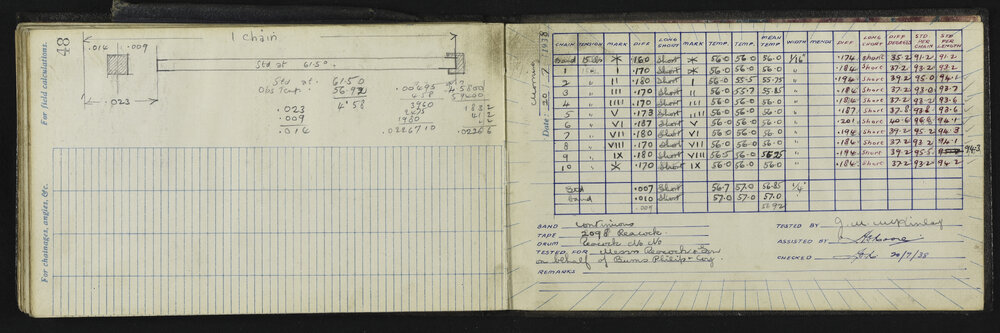 48
For field calculations.
For chainages, angles, &c.
1 chain
.014 .009
Std at 61.50
.023
Std at. 61.50
Obs Temp. 56.92
4.58
.023
.009
.014
.00495
458
3960
1980
.0226710
.02266
Date 20 7 1938
CHAIN TENSION MARK DIFF LONG SHORT MARK TEMP. TEMP. MEAN TEMP WIDTH MENDS DIFF LONG SHORT DIFF DEGREES STD PER CHAIN STD PER LENGTH
Band 15 lbs * .160 Short * 56.0 56.0 56.0 1/16" .174 Short 35.2 91.2 91.2
1 " I .170 Short I 56.0 56.0 56.0 " .184 Short 37.2 93.2 93.2
2 " II .180 Short I 56.0 55.5 55.75 " .194 Short 39.2 95.0 94.1
3 " III .170 Short II 56.0 55.7 55.85 " .184 Short 37.2 93.0 93.7
4 " IIII .170 Short III 56.0 56.0 56.0 " .184 Short 37.2 93.2 93.6
5 " V .173 Short IIII 56.0 56.0 56.0 " .187 Short 37.8 93.8 93.6
6 " VI .187 Short V 56.0 56.0 56.0 " .201 Short 40.6 96.6 94.1
7 " VII .180 Short VI 56.0 56.0 56.0 " .194 Short 39.2 95.2 94.3
8 " VIII .170 Short VII 56.0 56.0 56.0 " .184 Short 37.2 93.2 94.1
9 " IX .180 Short VIII 56.5 56.0 56.25 " .194 Short 39.2 95.5 94.3
10 " * .170 Short IX 56.0 56.0 56.0 " .184 Short 37.2 93.2 94.2
Std .007 Short 56.7 57.0 56.85 1/4"
Band .010 Short 57.0 57.0 57.0
.009 56.92
BAND continuous
TAPE 2098 Peacock
DRUM Peacock No No
TESTED FOR Messrs Peacock & Son
on behalf of Burns Philip & Coy.
REMARKS
TESTED BY J. M. McKinlay
ASSISTED BY
CHECKED 20/7/38